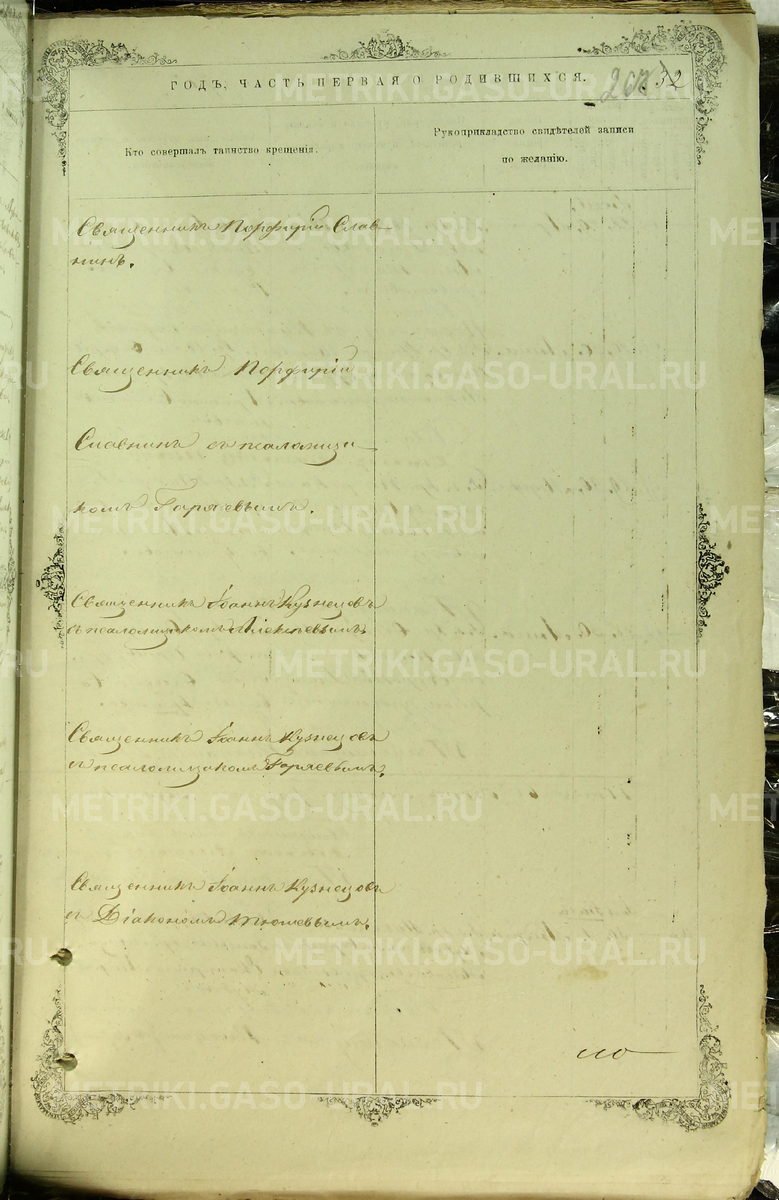 ГОДЪ, ЧАСТЬ ПЕРВАЯ О РОДИВШИХСЯ.
32
Кто совершалъ таинство крещенія.
Рукоприкладство свидѣтелей записи
по желанію.
Священникъ Порфирій Слав-
нинъ.
Священникъ Порфирій
Славнинъ съ псаломщи-
комъ Гаряевымъ.
Священникъ Іоаннъ Кузнецовъ
съ псаломщикомъ Алексѣевымъ.
Священникъ Іоаннъ Кузнецовъ
съ псаломщикомъ Гаряевымъ.
Священникъ Іоаннъ Кузнецовъ
съ Діакономъ Тюшевымъ.
METRIKI.GASO-URAL.RU